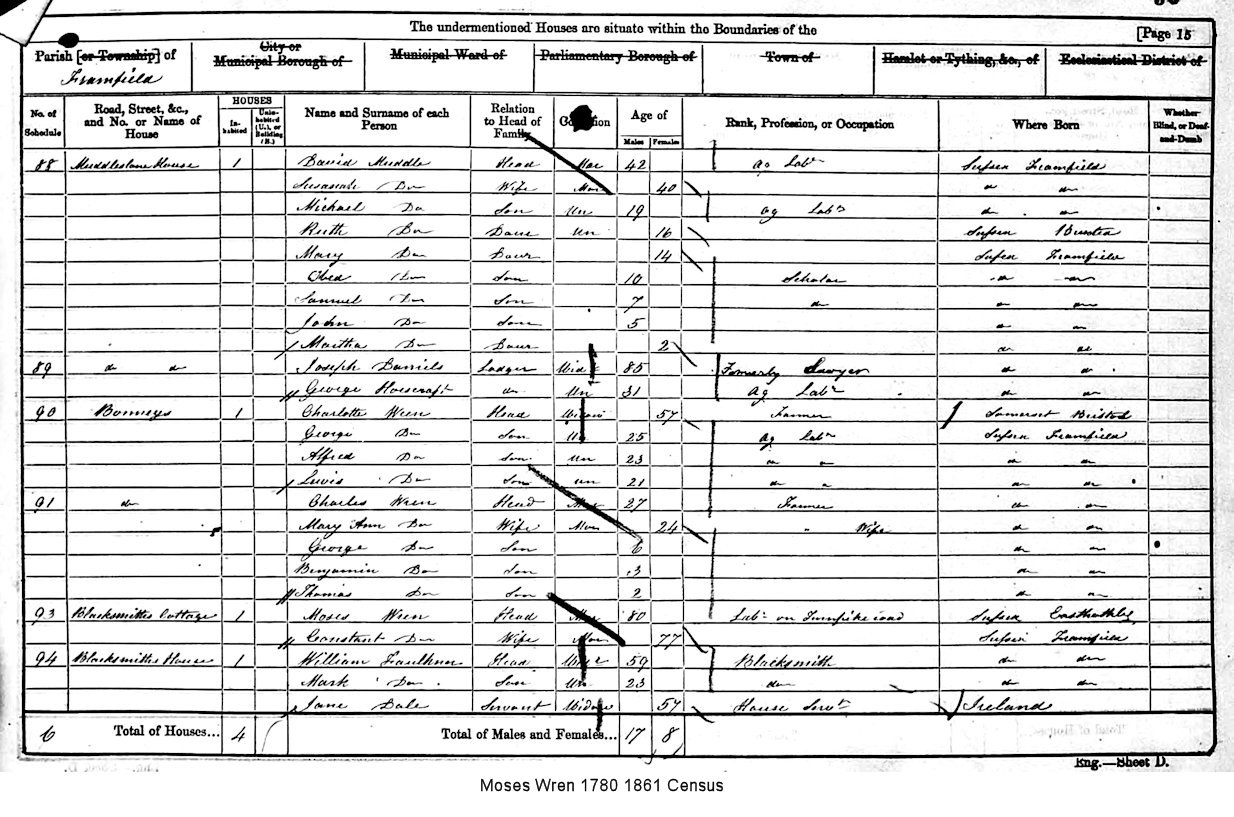 The undermentioned Houses are situate within the Boundaries of the
[Page 15
Parish [or Township] of
Framfield
City or Municipal Borough of
Municipal Ward of
Parliamentary Borough of
Town of
Hamlet or Tything, &c., of
Ecclesiastical District of
No. of Schedule
Road, Street, &c., and No. or Name of House
HOUSES
Inhabited
Uninhabited (U.), or Building (B.)
Name and Surname of each Person
Relation to Head of Family
Condition
Age of
Males
Females
Rank, Profession, or Occupation
Where Born
Whether Blind, or Deaf-and-Dumb
88 House 1 David Muddle Head Mar 42 Ag Labr Sussex Framfield
Susannah Do Wife Mar 40 do do
Michael Do Son Un 19 Ag Labr do do
Ruth Do Daur Un 16 Sussex Buxted
Mary Do Daur 14 Sussex Framfield
Obed Do Son 10 Scholar do do
Samuel Do Son 7 do do do
John Do Son 5 do do
Martha Do Daur 2 do do
89 do do Joseph Daniels Lodger Widr 85 Formerly Sawyer do do
George Horscraft do Un 31 Ag Labr do do
90 Bonneys 1 Charlotte Wren Head Widow 57 Farmer Somerset Bristol
George Do Son Un 25 Ag Labr Sussex Framfield
Alfred Do Son Un 23 do do do do
Lewis Do Son Un 21 do do do do
91 do Charles Wren Head Mar 27 Farmer do do
Mary Ann Do Wife Mar 24 " Wife do do
George Do Son 6 do do
Benjamin Do Son 3 do do
Thomas Do Son 2 do do
93 Blacksmiths Cottage 1 Moses Wren Head Mar 80 Labr on Turnpike road Sussex Easthothly
Constant Do Wife Mar 77 Sussex Framfield
94 Blacksmiths House 1 William Faulkner Head Widr 59 Blacksmith do do
Mark Do Son Un 23 do do do
Jane Dale Servant Widow 57 House Servt Ireland
6 Total of Houses... 4 Total of Males and Females... 17 8
Eng.—Sheet D.
Moses Wren 1780 1861 Census